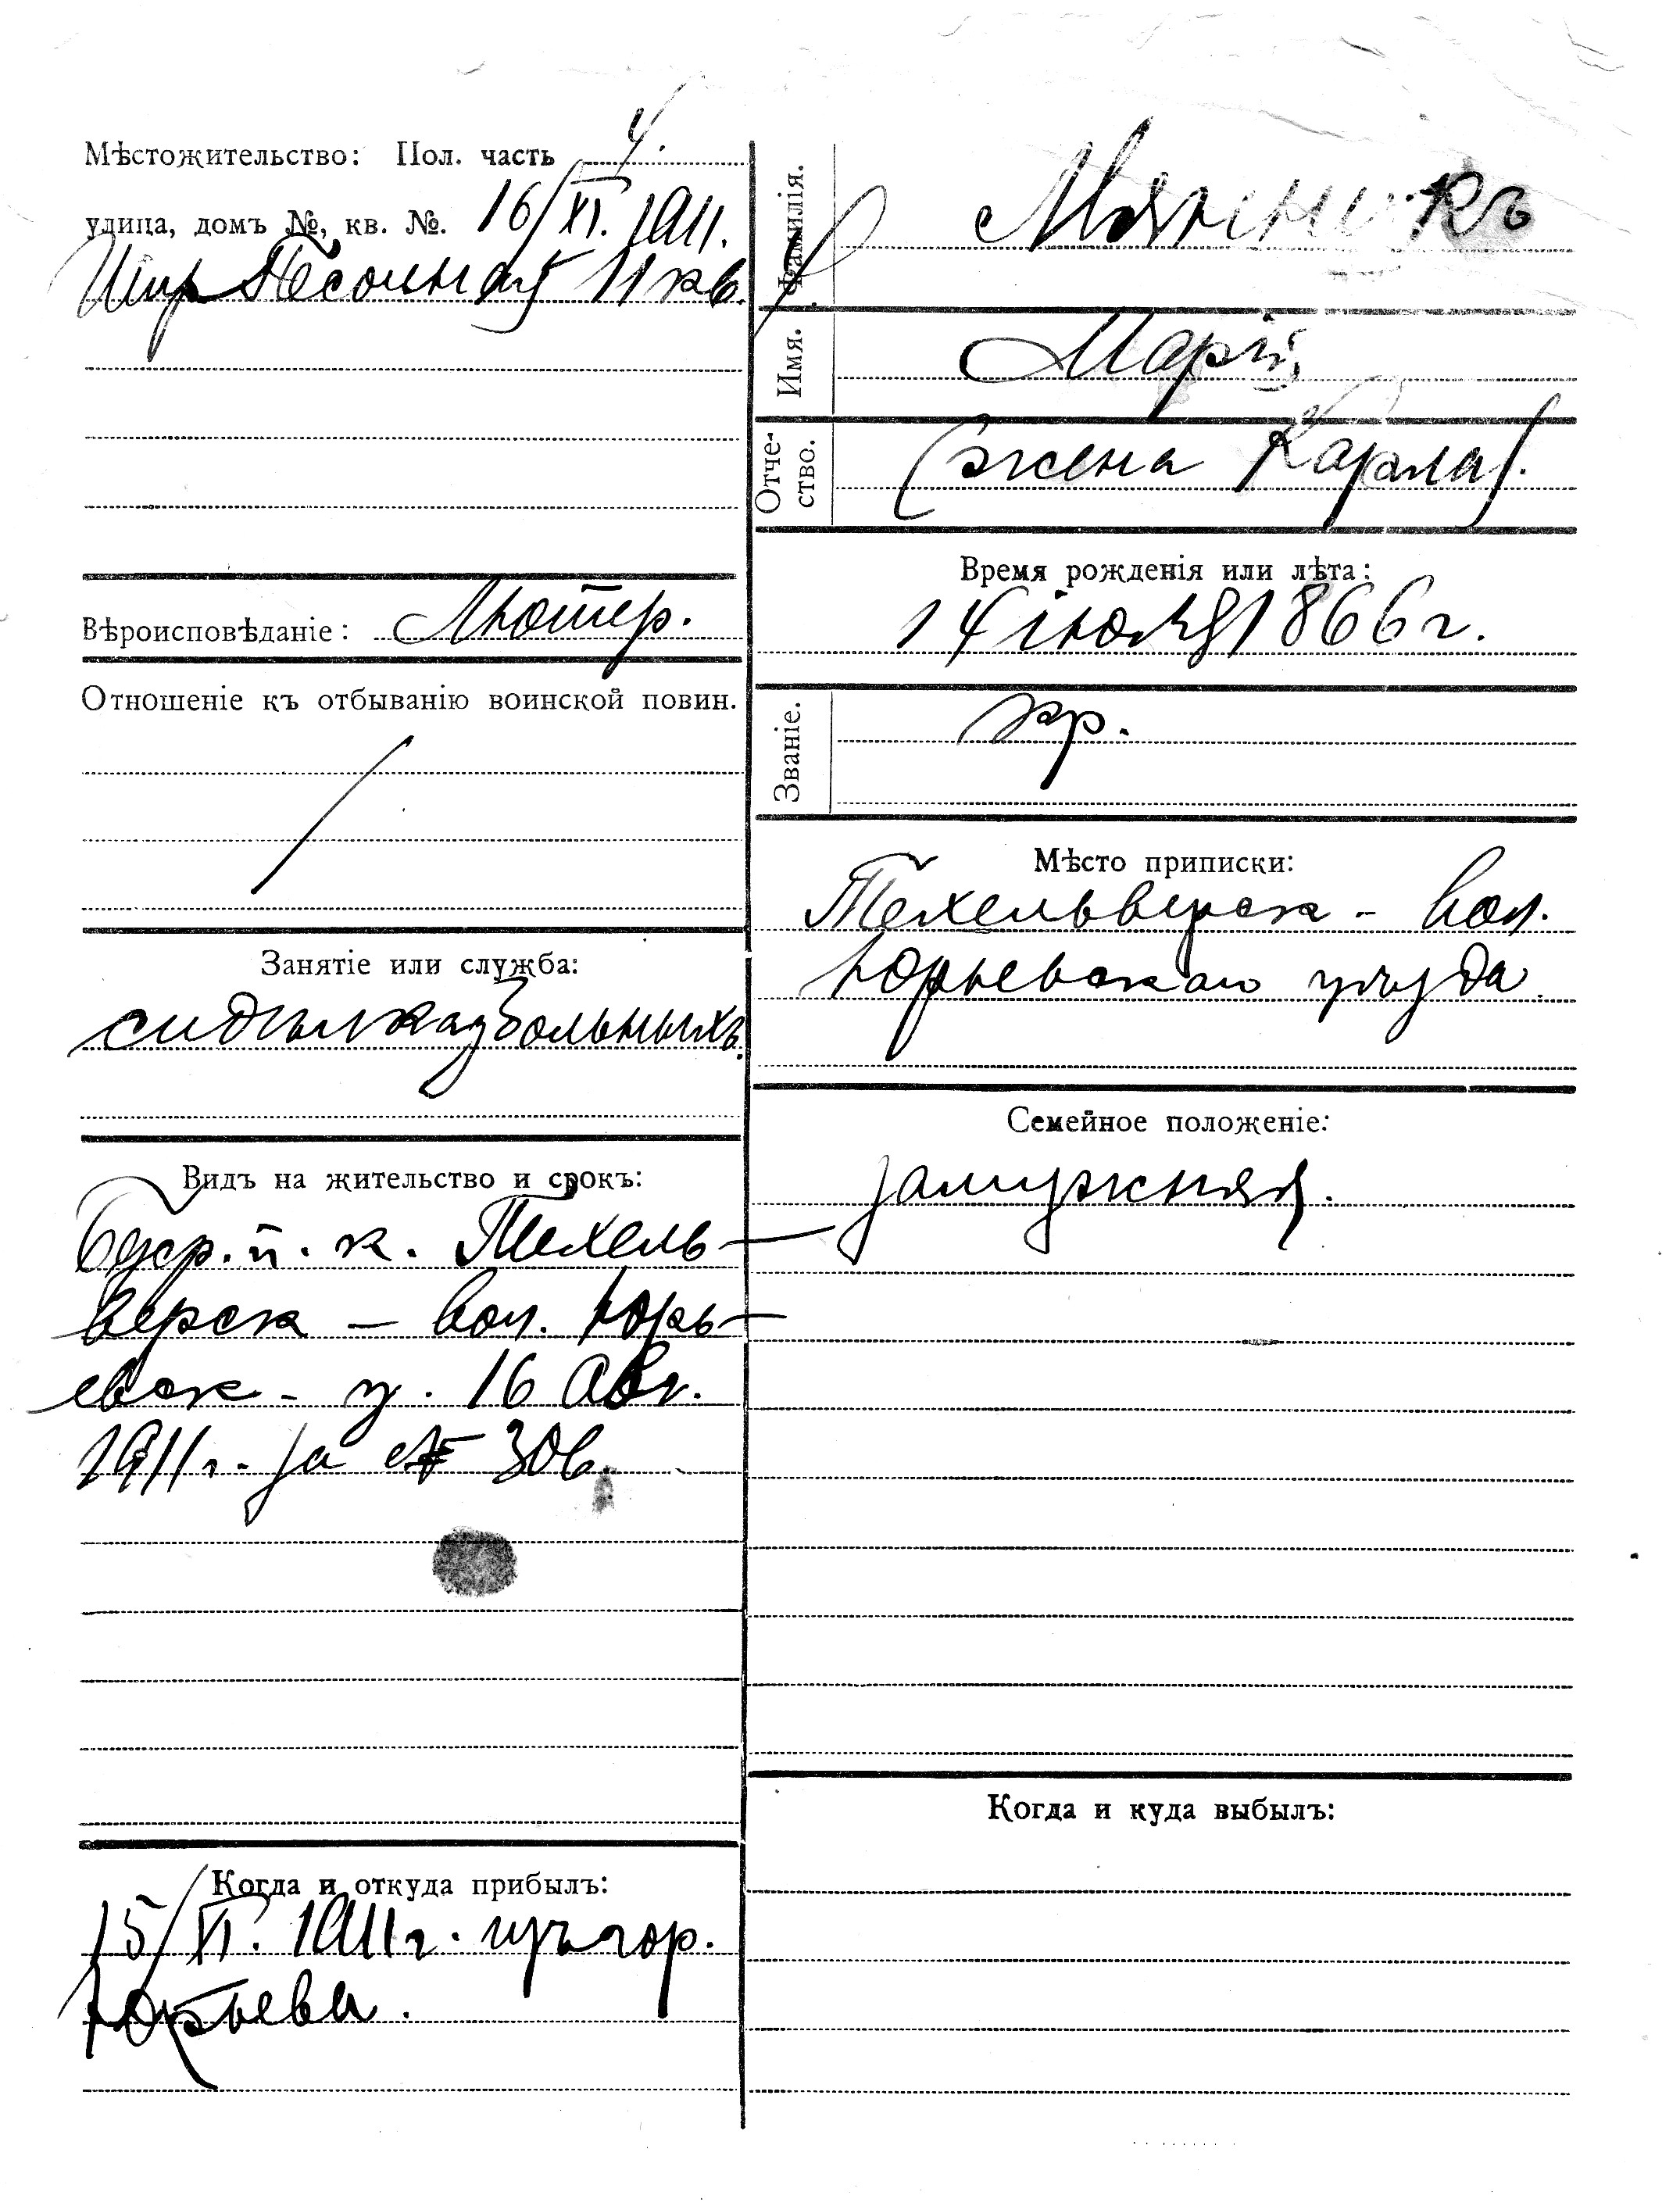 Мѣстожительство: Пол. часть 4.
улица, домъ №, кв. №. 16/XI. 1911.
Шир Песочная 11 кв.
Вѣроисповѣданіе: Лютер.
Отношеніе къ отбыванію воинской повин.
Занятіе или служба:
сидѣлка у больныхъ.
Видъ на жительство и срокъ:
п. к. Техель-
верск - вол. Юрь-
евск - у. 16 Авг.
1911 г. за № 306.
Когда и откуда прибылъ:
15/XI. 1911 г. изъ гор.
Юрьева.
Фамилія.
Имя. Марія
Отче-
ство. (жена Карла).
Время рожденія или лѣта:
14 іюля 1866 г.
Званіе. кр.
Мѣсто приписки:
Техельверск - вол.
Юрьевскаго уѣзда.
Семейное положеніе:
замужняя.
Когда и куда выбылъ: